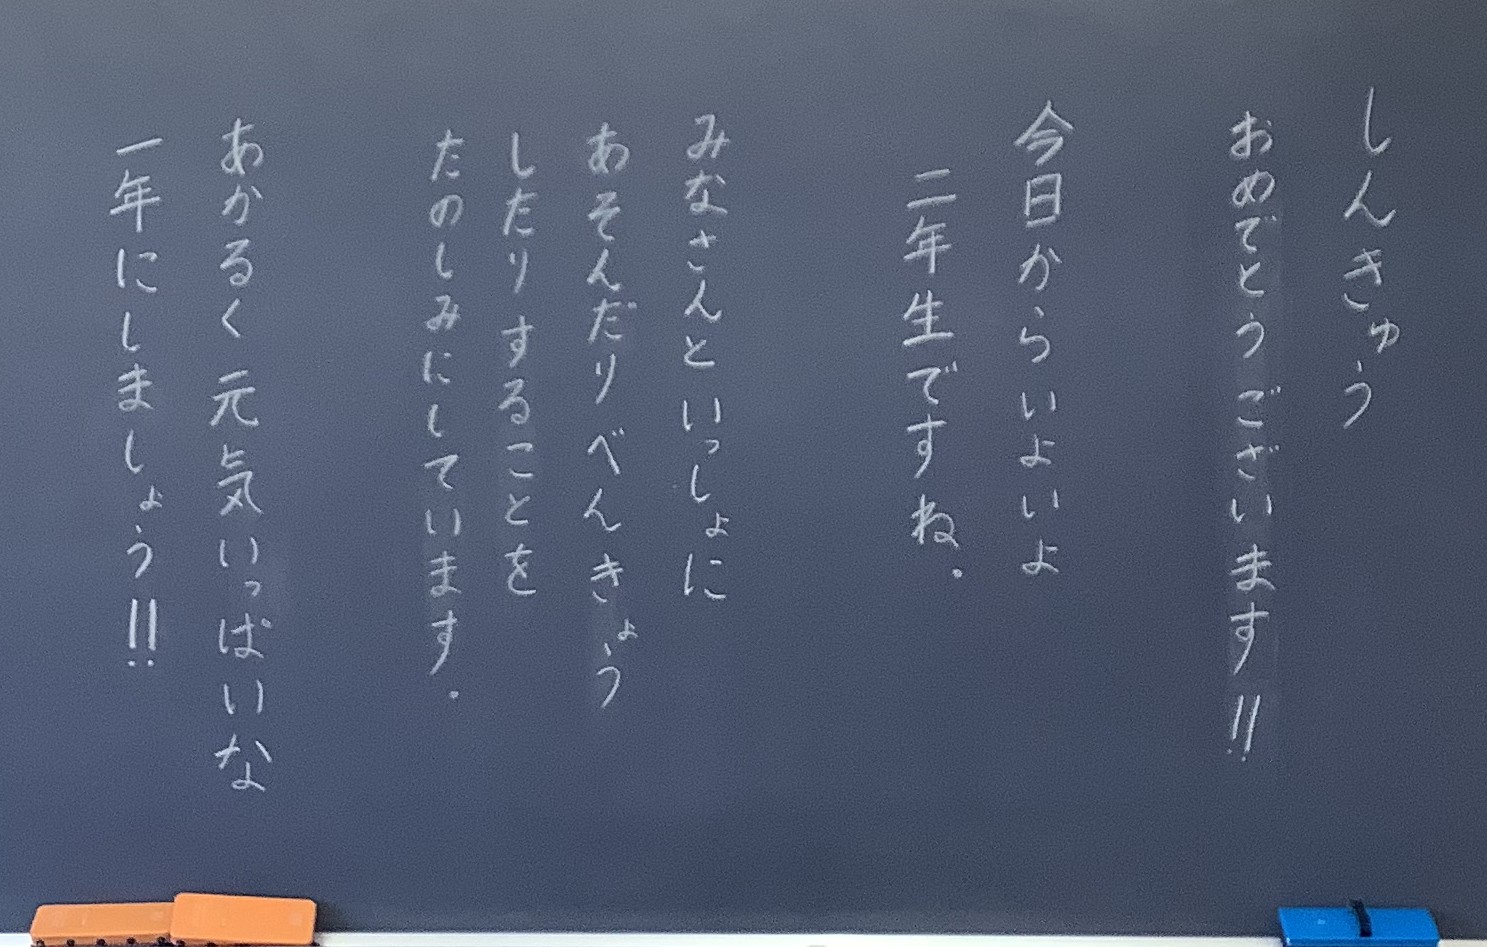 しんきゅう
おめでとうございます!!
今日からいよいよ
二年生ですね.
みなさんといっしょに
あそんだりべんきょう
したりすることを
たのしみにしています.
あかるく元気いっぱいな
一年にしましょう!!